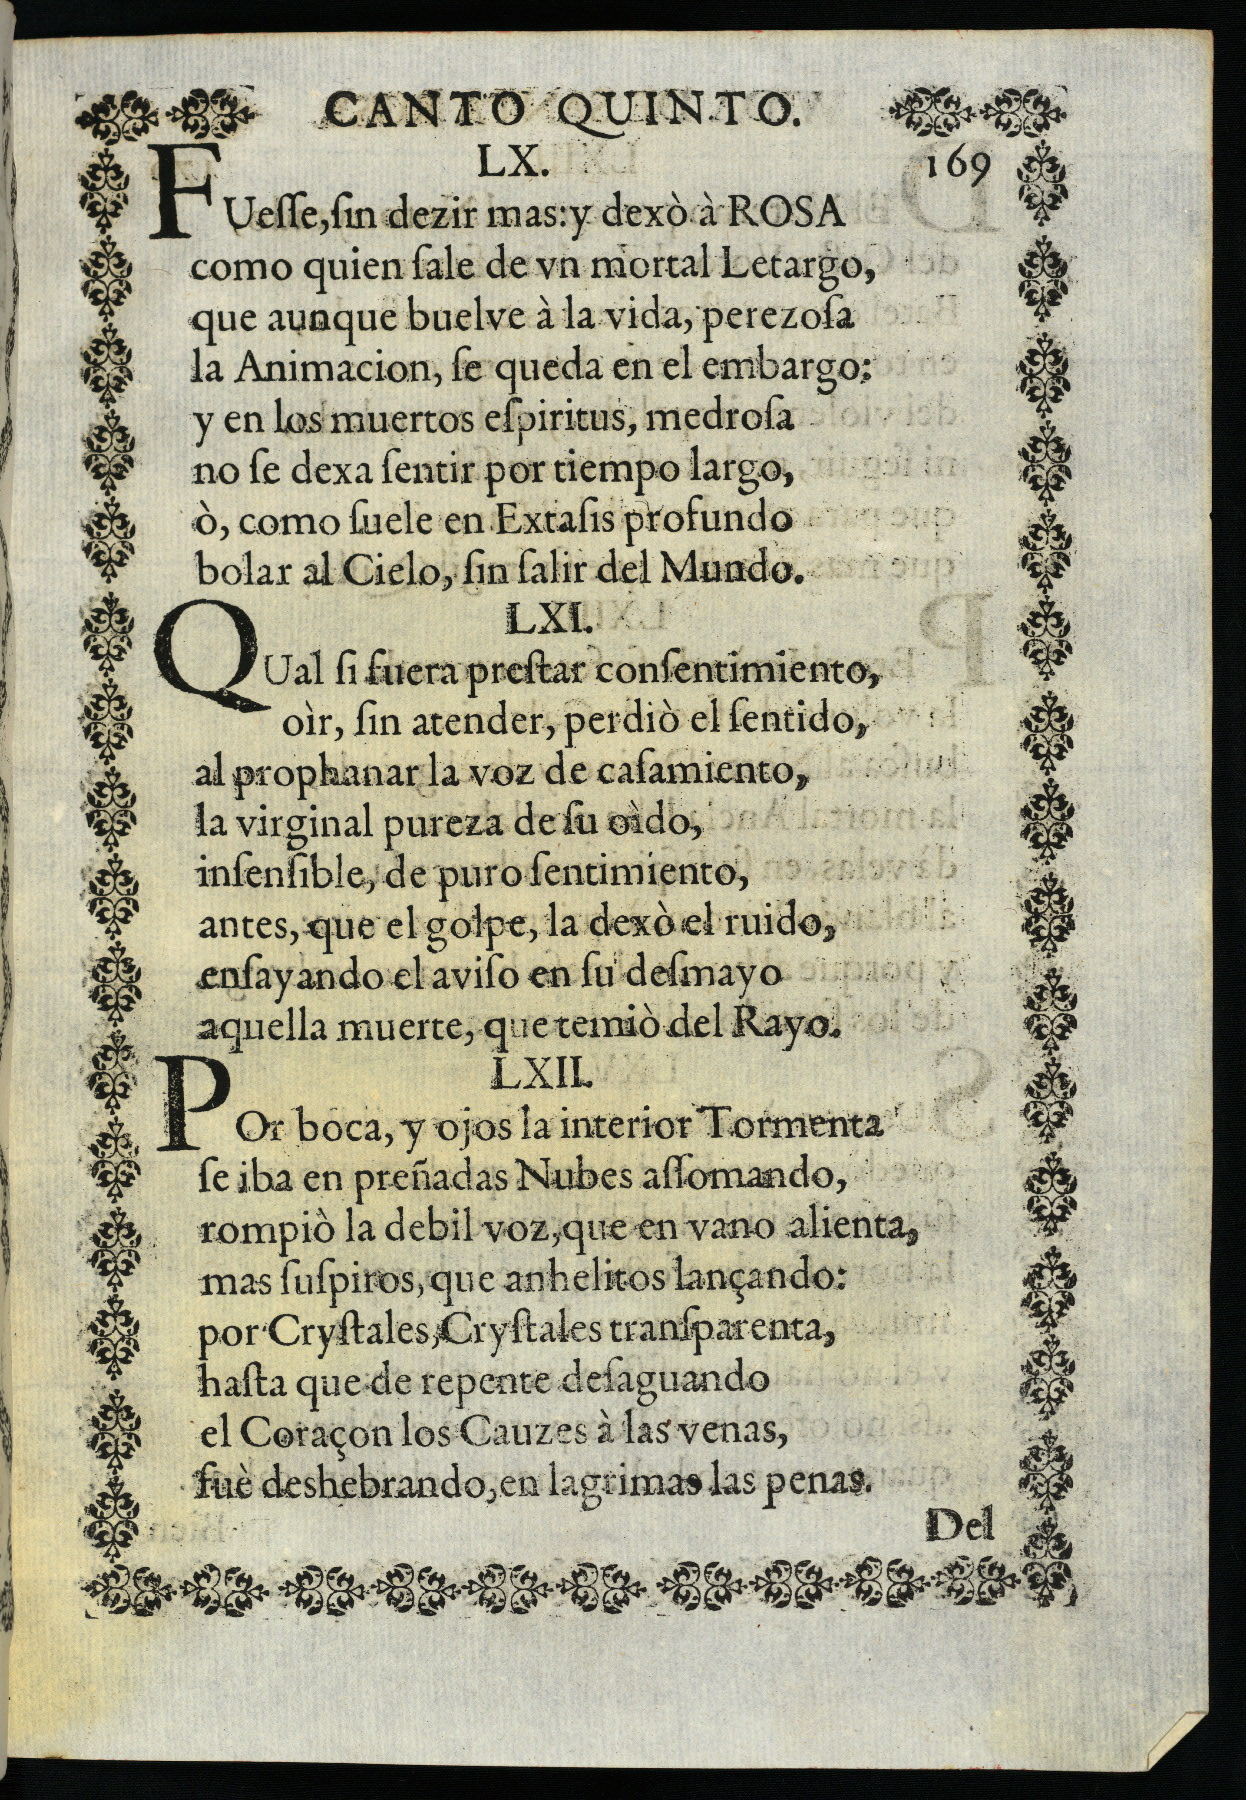 CANTO QUINTO.
LX.
169
FUeſſe, ſin dezir mas: y dexò à ROSA
como quien ſale de vn mortal Letargo,
que aunque buelve à la vida, perezoſa
la Animacion, ſe queda en el embargo:
y en los muertos eſpiritus, medroſa
no ſe dexa ſentir por tiempo largo,
ò, como ſuele en Extaſis profundo
bolar al Cielo, ſin ſalir del Mundo.
LXI.
QUal ſi fuera preſtar conſentimiento,
oìr, ſin atender, perdiò el ſentido,
al prophanar la voz de caſamiento,
la virginal pureza de ſu oìdo,
inſenſible, de puro ſentimiento,
antes, que el golpe, la dexò el ruido,
enſayando el aviſo en ſu deſmayo
aquella muerte, que temiò del Rayo.
LXII.
POr boca, y ojos la interior Tormenta
ſe iba en preñadas Nubes aſſomando,
rompiò la debil voz, que en vano alienta,
mas ſuſpiros, que anhelitos lançando:
por Cryſtales, Cryſtales tranſparenta,
haſta que de repente deſaguando
el Coraçon los Cauzes à las venas,
fuè deshebrando, en lagrimas las penas.
Del